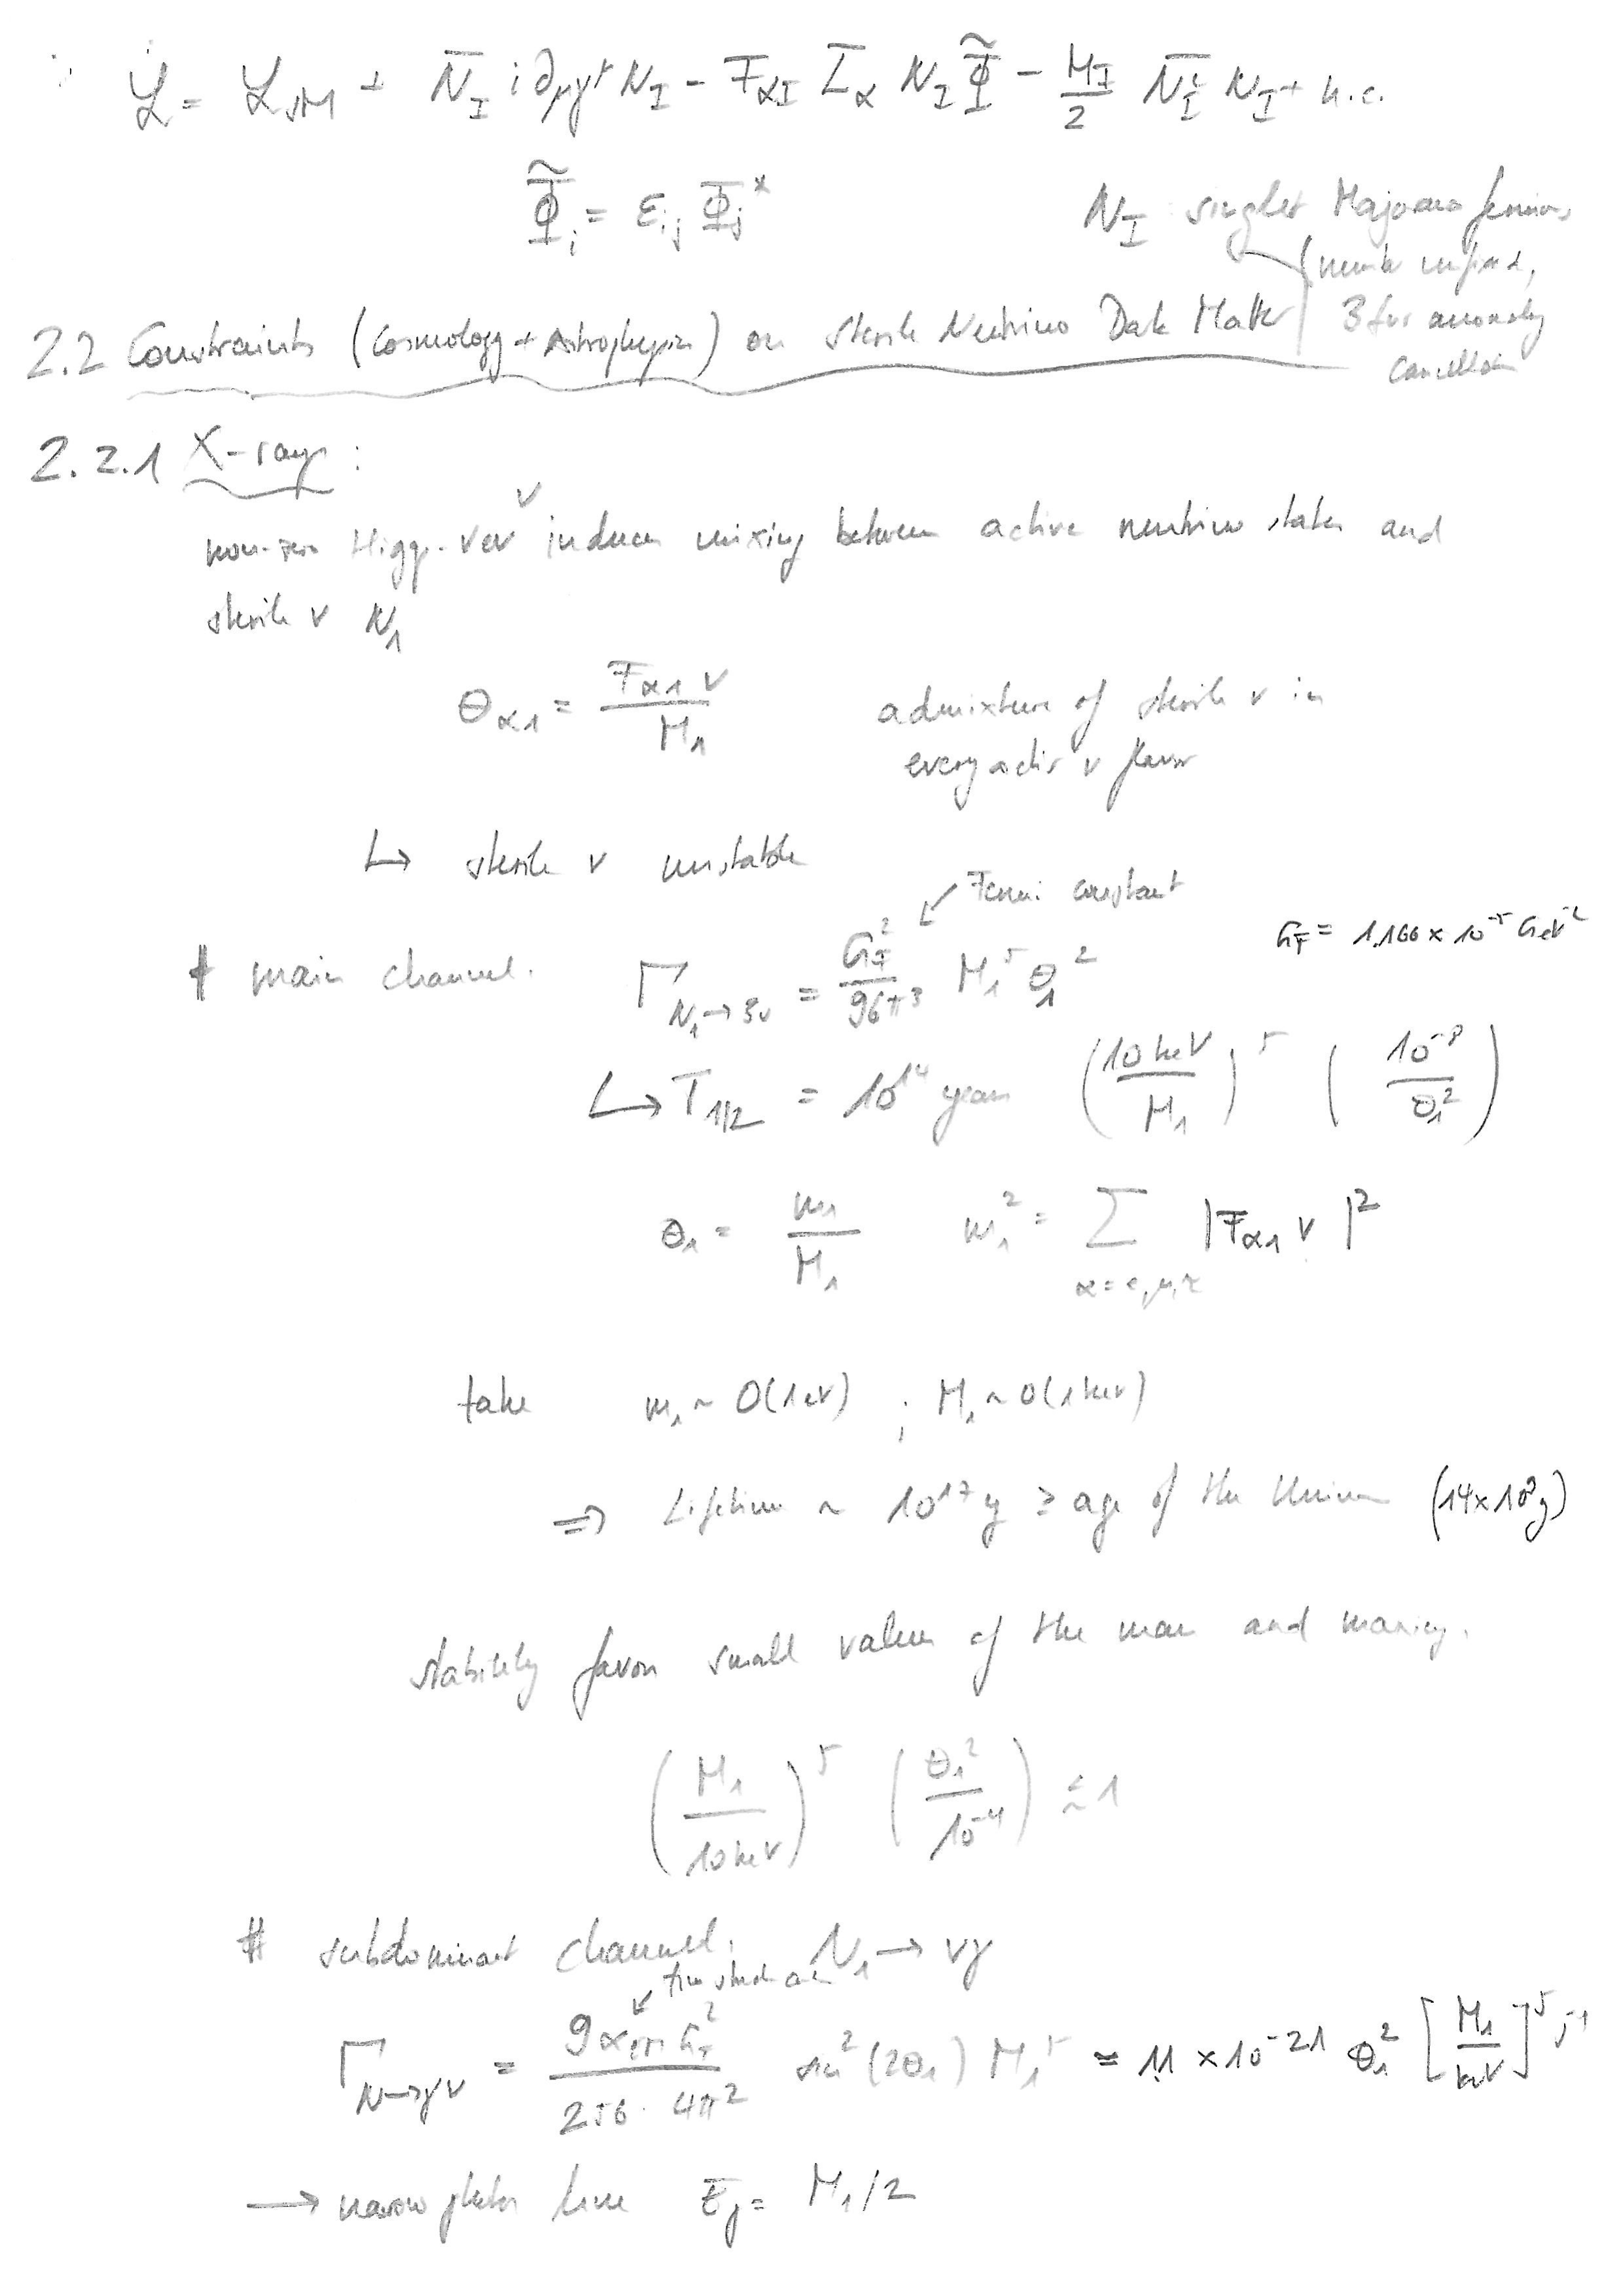 ℒ = ℒ_SM + N̄_I i∂_μγ^μ N_I − F_αI L̄_α N_I Φ̃ − M_I/2 N̄_I^c N_I + h.c.
Φ̃_i = ε_ij Φ_j^*
N_I singlet Majorana fermions
3 for anomaly
2.2 Constraints (Cosmology + Astrophysics) on sterile Neutrino Dark Matter
2.2.1 X-rays :
non-zero Higgs-vev v induces mixing between active neutrino states and
sterile ν N_1
θ_α1 = F_α1 v / M_1 admixture of sterile ν in
every active ν flavor
↳ sterile ν unstable
Fermi constant
# main channel. Γ_N_1→3ν = G_F^2 / 96π^3 M_1^5 θ_1^2 G_F = 1.166 × 10^-5 GeV^-2
↳ T_1/2 = 10^14 years (10 keV / M_1)^5 (10^-8 / θ_1^2)
θ_1 = m_1 / M_1 m_1^2 = Σ_α=e,μ,τ |F_α1 v|^2
take m_1 ~ O(1eV) ; M_1 ~ O(1keV)
⇒ Lifetime ~ 10^17 y ≥ age of the Universe (14×10^9 y)
stability favors small values of the mass and mixing.
(M_1 / 10keV)^5 (θ_1^2 / 10^-4) ≲ 1
# subdominant channel. N_1 → νγ
Γ_N→γν = 9 α_em G_F^2 / 256 · 4π^2 sin^2(2θ_1) M_1^5 ≃ 11 × 10^-21 θ_1^2 [M_1 / keV]^5 s^-1
→ narrow photon line E_γ = M_1/2